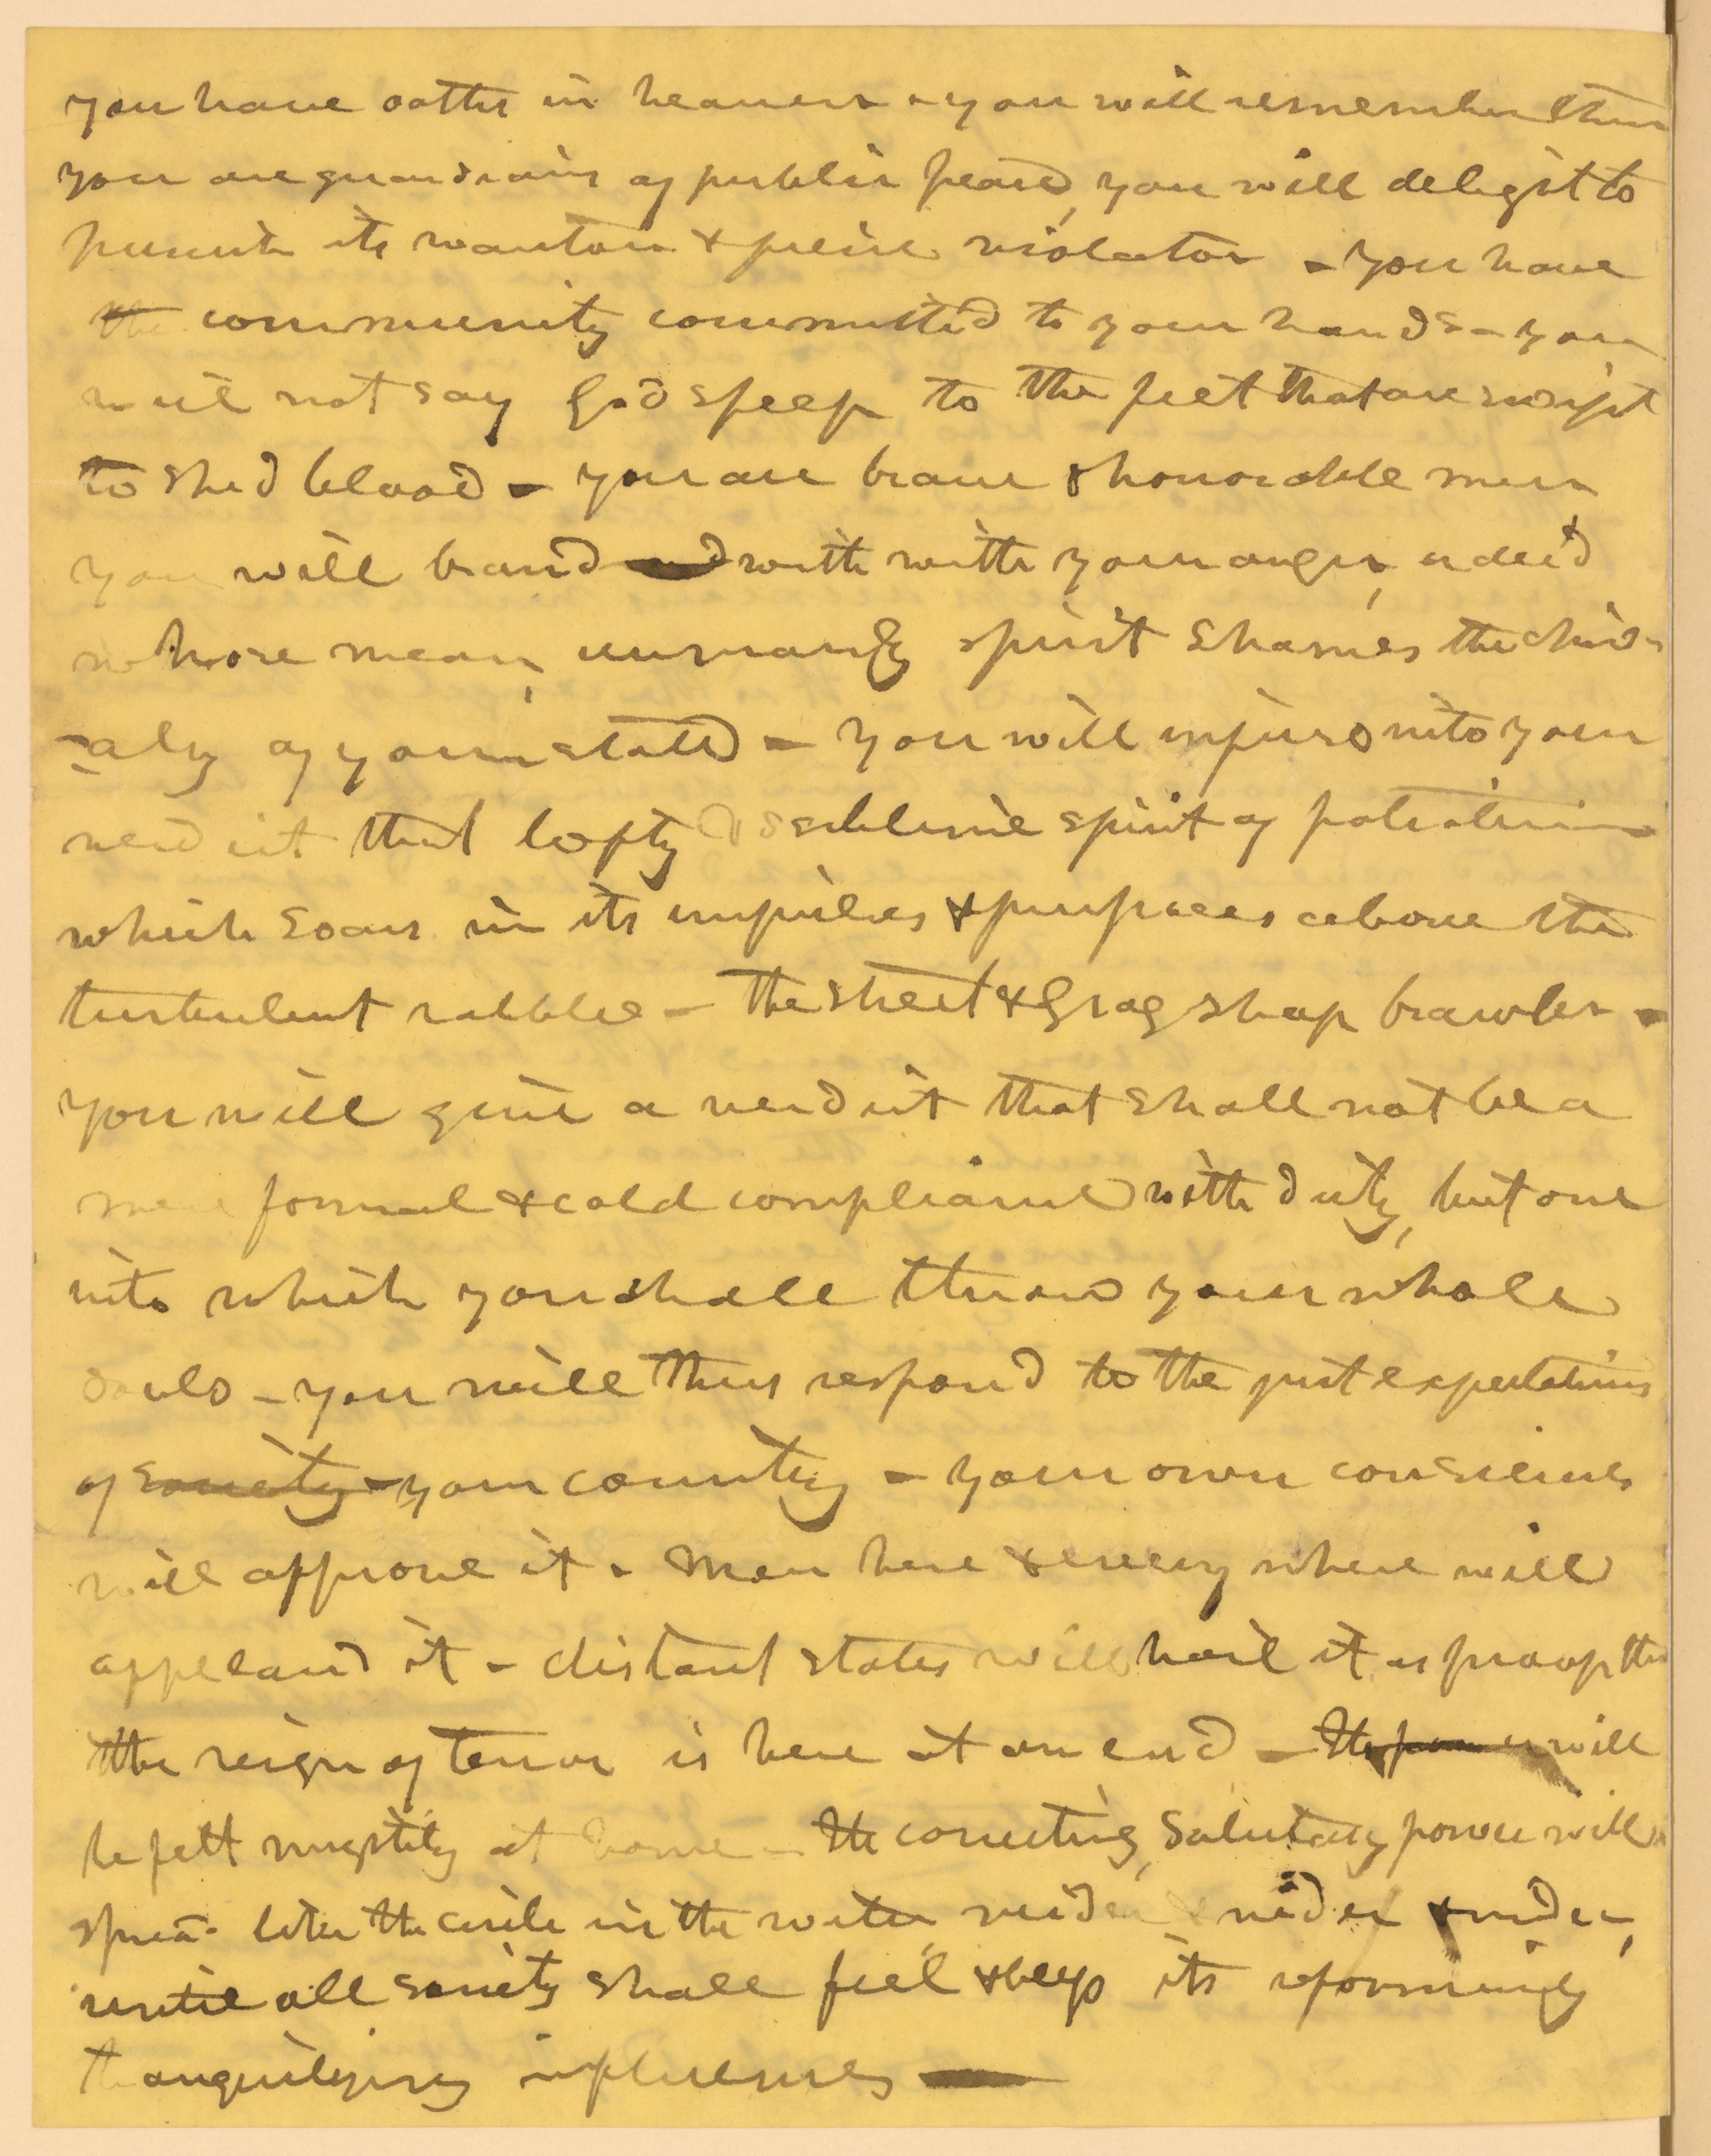 you have oaths in heaven - you will remember them
you are guardians of public peace, you will delight to
punish its wanton & feline violator - you have
the community committed to your hands - you
will not say God speep to the feet that are swift
to shed blood - you are brave & honorable men
you will brand and with with your anger, a deed
whose mean, unmanly spirit shames the chiv-
-alry of your state - you will infuse into your
verdict that lofty & sublime spirit of patriotism
which soars in its impulses & purposes above the
turbulent rabble - the street & Grog shop brawler -
you will give a verdict that shall not be a
mere formal & cold compliance with duty, but one
into which you shall throw your whole
souls - you will thus respond to the just expectations
of society - your country - your own consciences
will approve it - Men here & every where will
applaud it - distant states will hail it as proof tht
the reign of terror is here at an end - Its power will
be felt mightily at home - Its correcting, salutary power will
spread like the circle in the water, wider & wider & wider,
until all society shall feel & keep its reforming
tranquilizing influences —